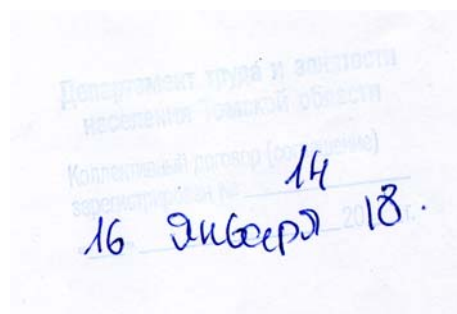 Департамент труда и занятости
населения Томской области
Коллективный договор (соглашение)
зарегистрирован № 14
16 января 2018 г.